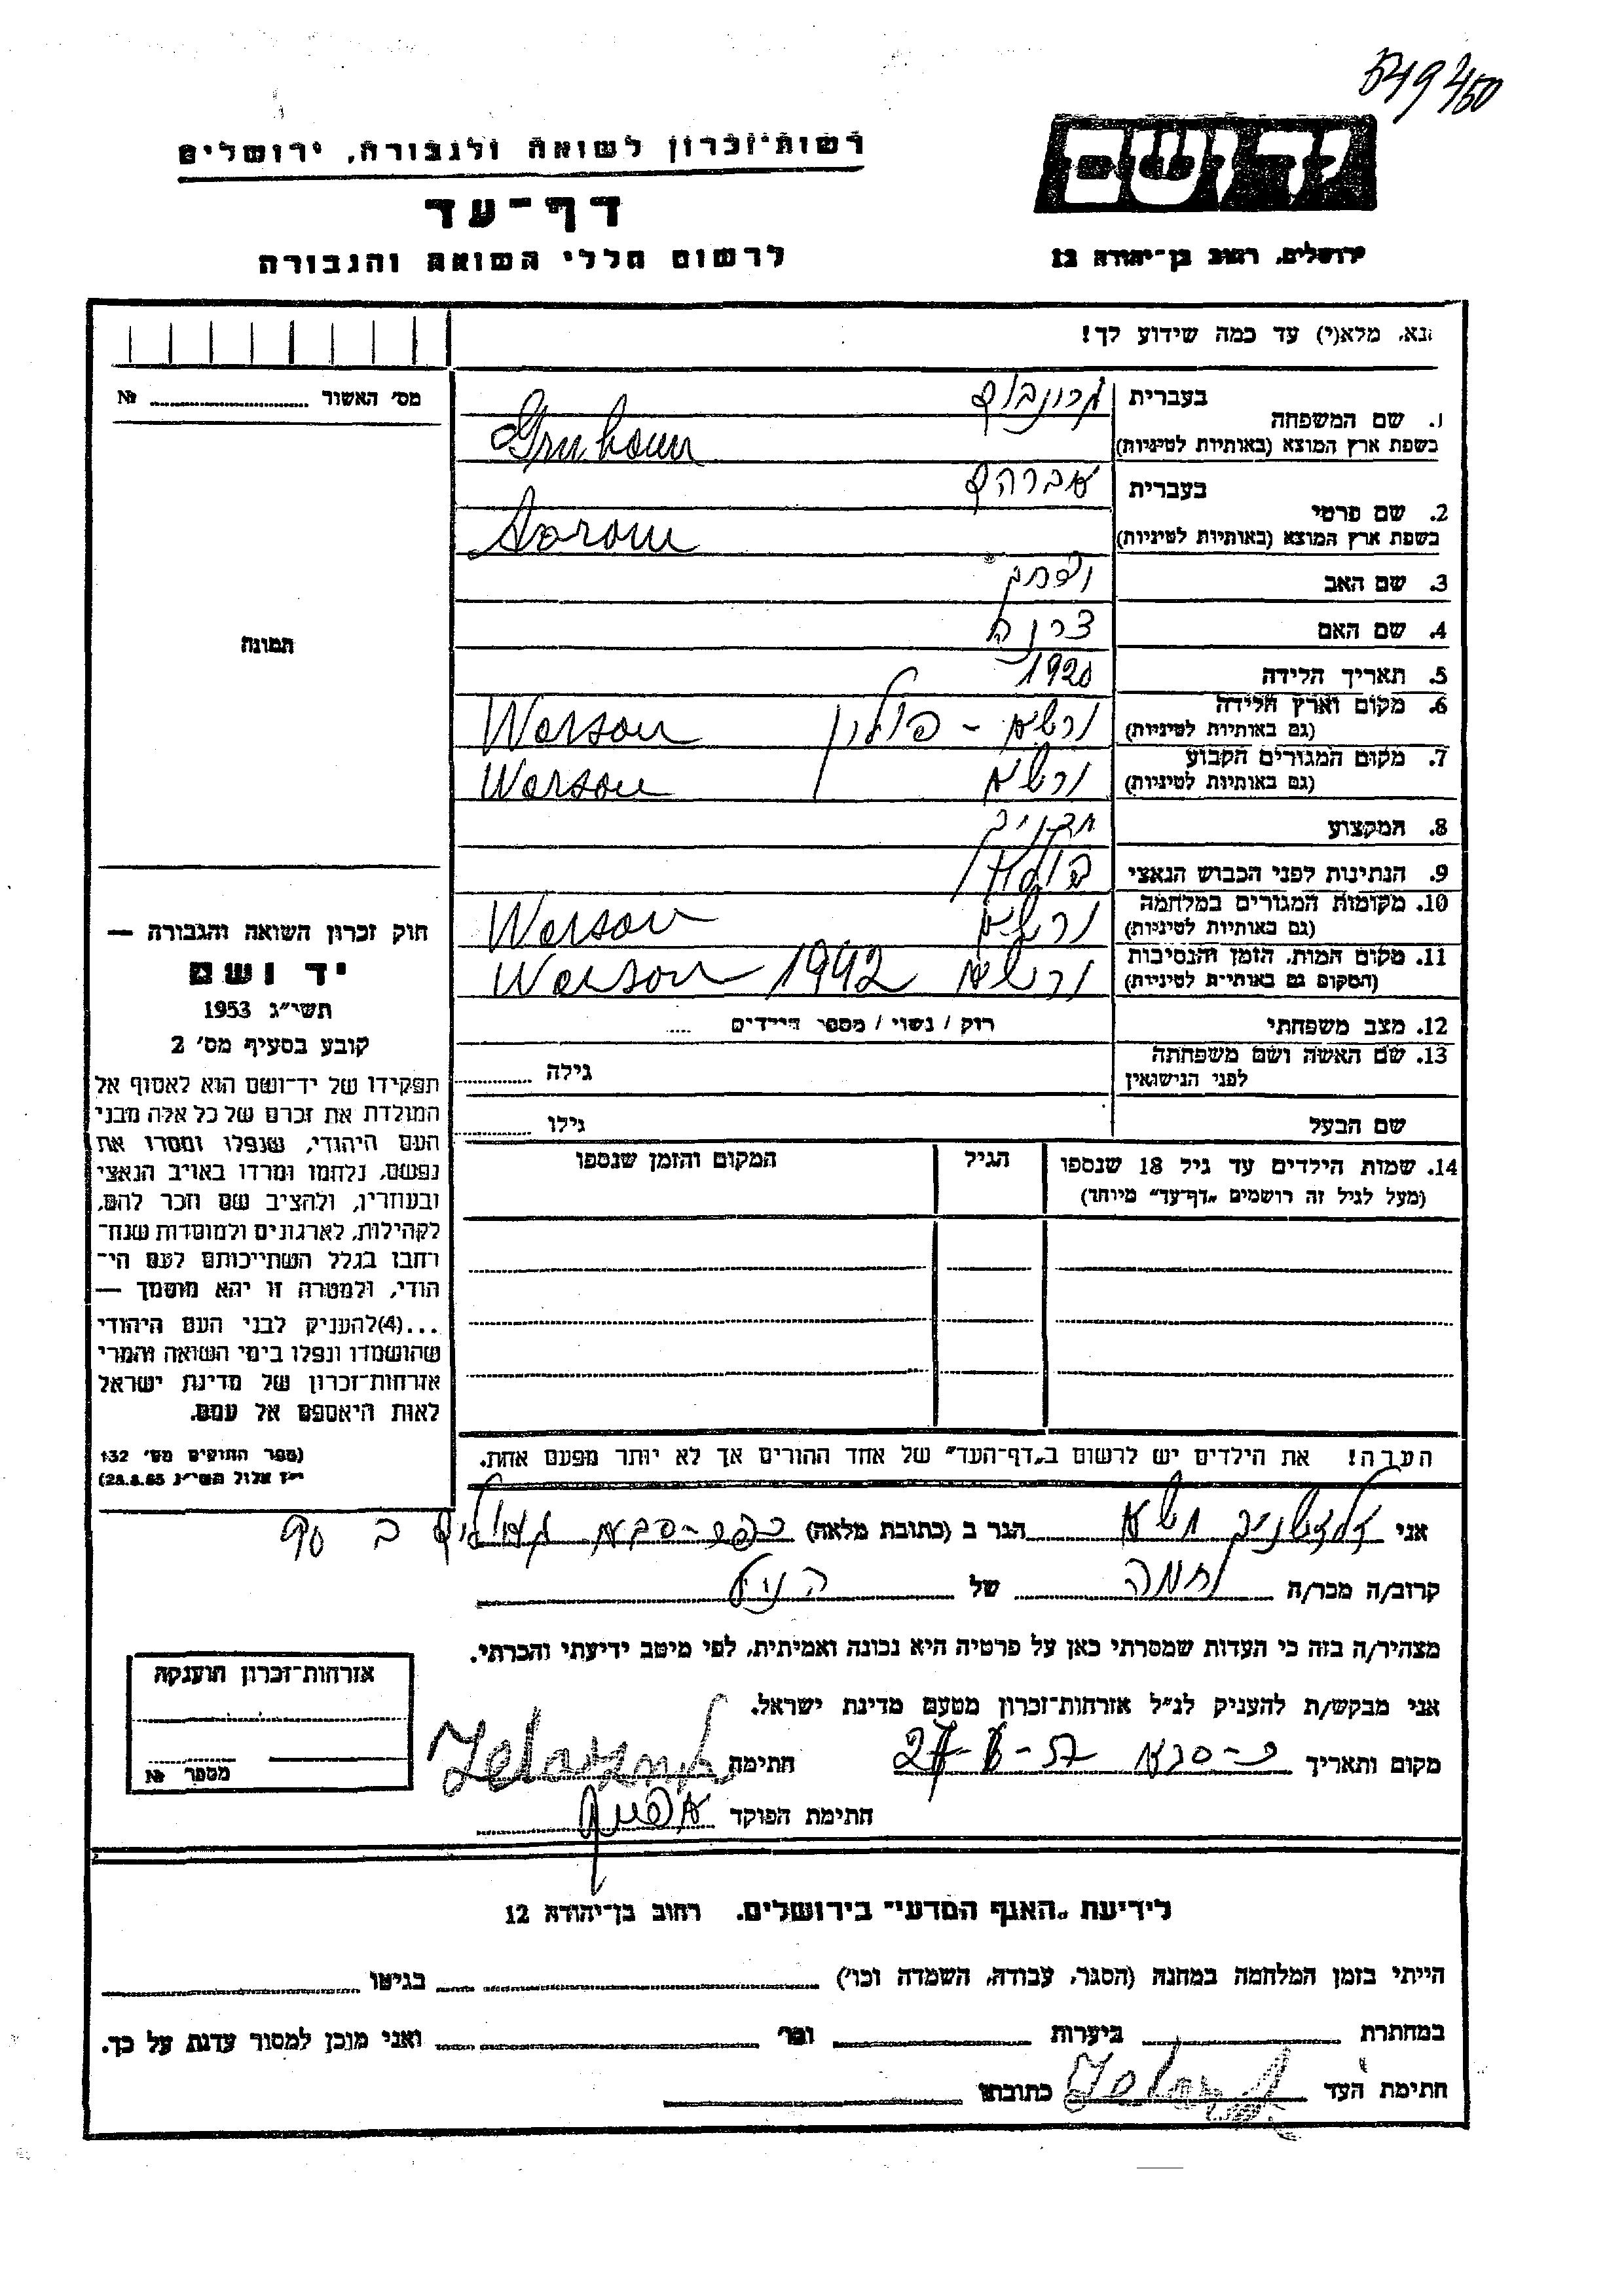 549/450
יד ושם
רשות־זכרון לשואה ולגבורה, ירושלים
דף־עד
לרשום חללי השואה והגבורה
ירושלים, רחוב בן־יהודה 12
נא, מלא(י) עד כמה שידוע לך!
מס׳ האשור № 
1. שם המשפחה
בעברית גרינבוים
בשפת ארץ המוצא (באותיות לטיניות) Grunbaum
2. שם פרטי
בעברית אברהם
בשפת ארץ המוצא (באותיות לטיניות)
3. שם האב
4. שם האם
5. תאריך הלידה 1920
6. מקום וארץ הלידה ורשא - פולין Warsau
(גם באותיות לטיניות)
7. מקום המגורים הקבוע ורשא Warsau
(גם באותיות לטיניות)
8. המקצוע
9. הנתינות לפני הכבוש הנאצי
10. מקומות המגורים במלחמה ורשא Warsau
(גם באותיות לטיניות)
11. מקום המות, הזמן והנסיבות ורשא 1942 Warsau
(המקום גם באותיות לטיניות)
12. מצב משפחתי רוק / נשוי / מספר הילדים
13. שם האשה ושם משפחתה גילה
לפני הנישואין
שם הבעל גילו
14. שמות הילדים עד גיל 18 שנספו הגיל המקום והזמן שנספו
(מעל לגיל זה רושמים „דף־עד״ מיוחד)
הערה! את הילדים יש לרשום ב„דף־העד״ של אחד ההורים אך לא יותר מפעם אחת.
תמונה
חוק זכרון השואה והגבורה —
יד ושם
תשי״ג 1953
קובע בסעיף מס׳ 2
תפקידו של יד־ושם הוא לאסוף אל
המולדת את זכרם של כל אלה מבני
העם היהודי, שנפלו ומסרו את
נפשם, נלחמו ומרדו באויב הנאצי
ובעוזריו, ולהציב שם וזכר להם,
לקהילות, לארגונים ולמוסדות שנח־
רחבו בגלל השתייכותם לעם הי־
הודי, ולמטרה זו יהא מוסמך —
...(4)להעניק לבני העם היהודי
שהושמדו ונפלו בימי השואה והמרי
אזרחות־זכרון של מדינת ישראל
לאות היאספם אל עמם.
(ספר החוקים מס׳ 132
י״ז אלול תשי״ג 28.8.53)
אני הגר ב (כתובת מלאה) כפר-סבא
קרוב/ה מכר/ה של
מצהיר/ה בזה כי העדות שמסרתי כאן על פרטיה היא נכונה ואמיתית, לפי מיטב ידיעתי והכרתי.
אני מבקש/ת להעניק לנ״ל אזרחות־זכרון מטעם מדינת ישראל.
מקום ותאריך כ-סבא חתימה
חתימת הפוקד
אזרחות־זכרון הוענקה
מספר №
לידיעת „האגף המדעי״ בירושלים, רחוב בן־יהודה 12
הייתי בזמן המלחמה במחנה (הסגר, עבודה, השמדה וכו׳) בגיטו
במחתרת ביערות וכו׳ ואני מוכן למסור עדות על כך.
חתימת העד כתובתו